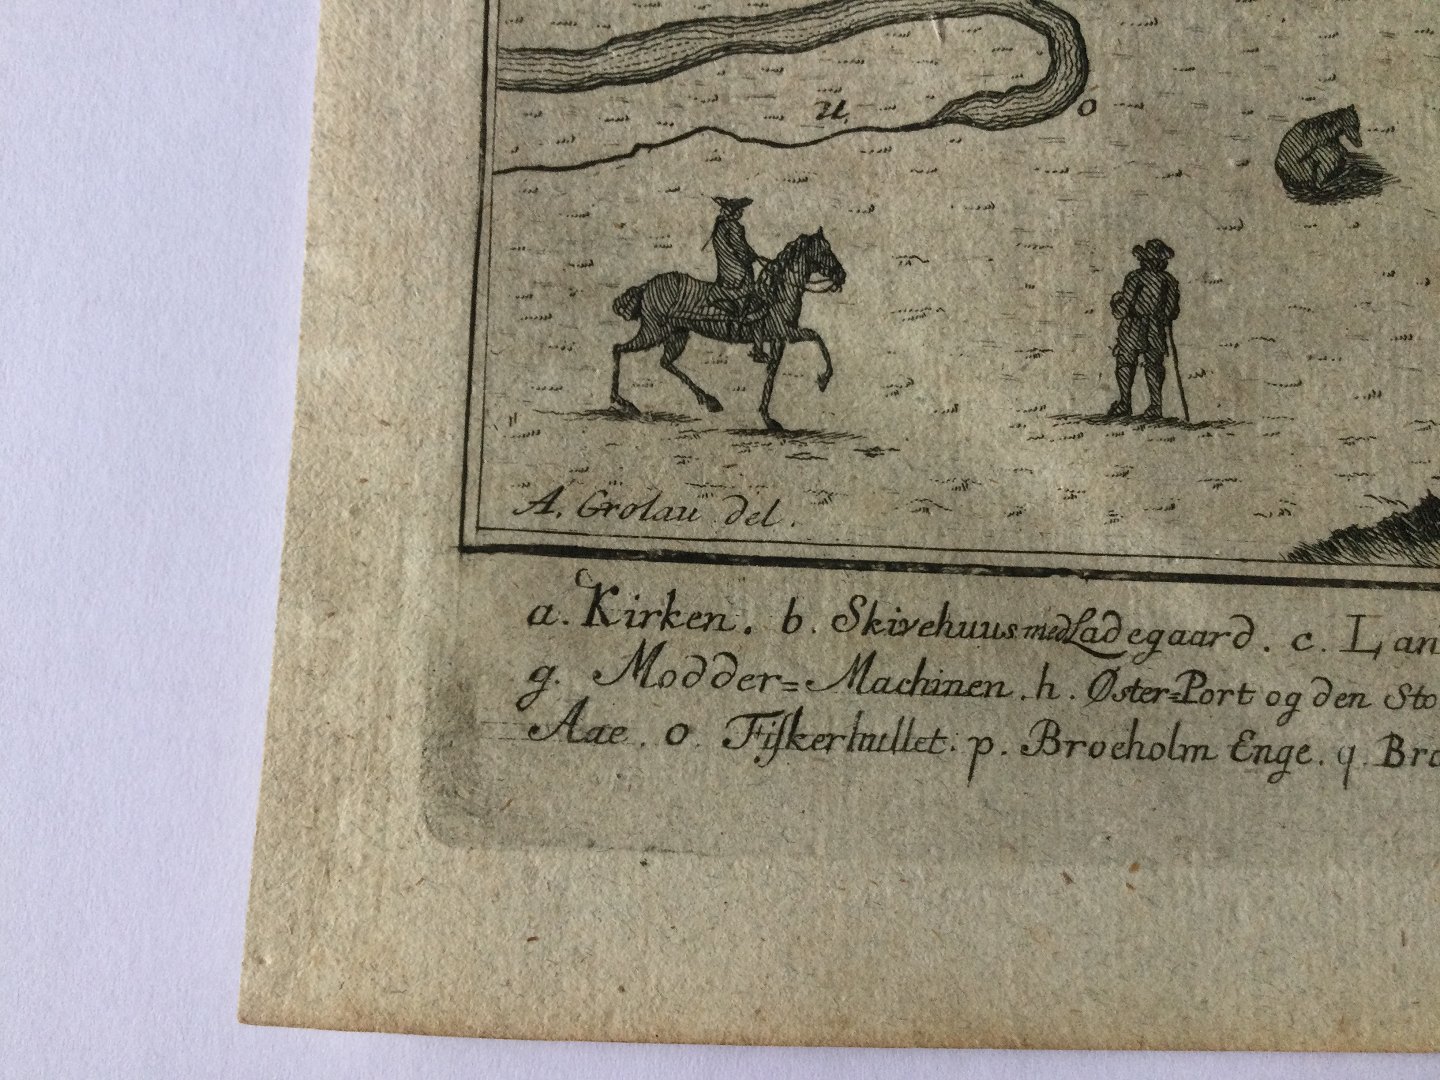 u.
o
A. Grolau del.
a. Kirken. b. Skivehuus med Ladegaard. c. Lan
g. Modder=Machinen. h. Øster=Port og den Sto
Aae. o. Fiſkerhullet. p. Broeholm Enge. q. Bro